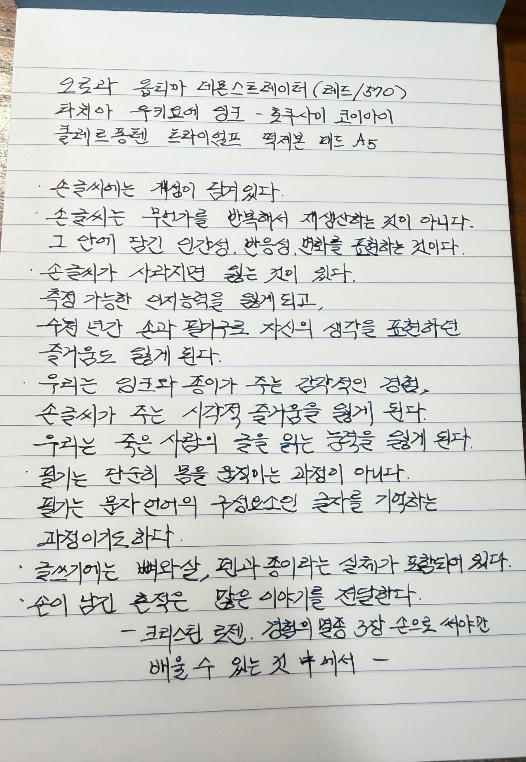 오로라 옵티마 데몬스트레이터(레드/370)
타치아 우키요에 잉크 - 호쿠사이 코이아이
클레르퐁텐 트라이엄프 떡제본 패드 A5
· 손글씨에는 개성이 담겨있다.
· 손글씨는 무언가를 반복해서 재생산하는 것이 아니다.
그 안에 담긴 인간성, 반응성, 변화를 표현하는 것이다.
· 손글씨가 사라지면 잃는 것이 있다.
측정 가능한 인지능력을 잃게 되고,
수천 년간 손과 필기구로 자신의 생각을 표현하던
즐거움도 잃게 된다.
· 우리는 잉크와 종이가 주는 감각적인 경험,
손글씨가 주는 시각적 즐거움을 잃게 된다.
우리는 죽은 사람의 글을 읽는 능력을 잃게 된다.
· 필기는 단순히 몸을 움직이는 과정이 아니다.
필기는 문자 언어의 구성요소인 글자를 기억하는
과정이기도 하다.
· 글쓰기에는 뼈와 살, 펜과 종이라는 실체가 포함되어 있다.
· 손이 남긴 흔적은 많은 이야기를 전달한다.
- 크리스틴 로젠. 경험의 멸종 3장 손으로 써야만
배울 수 있는 것 中에서 -